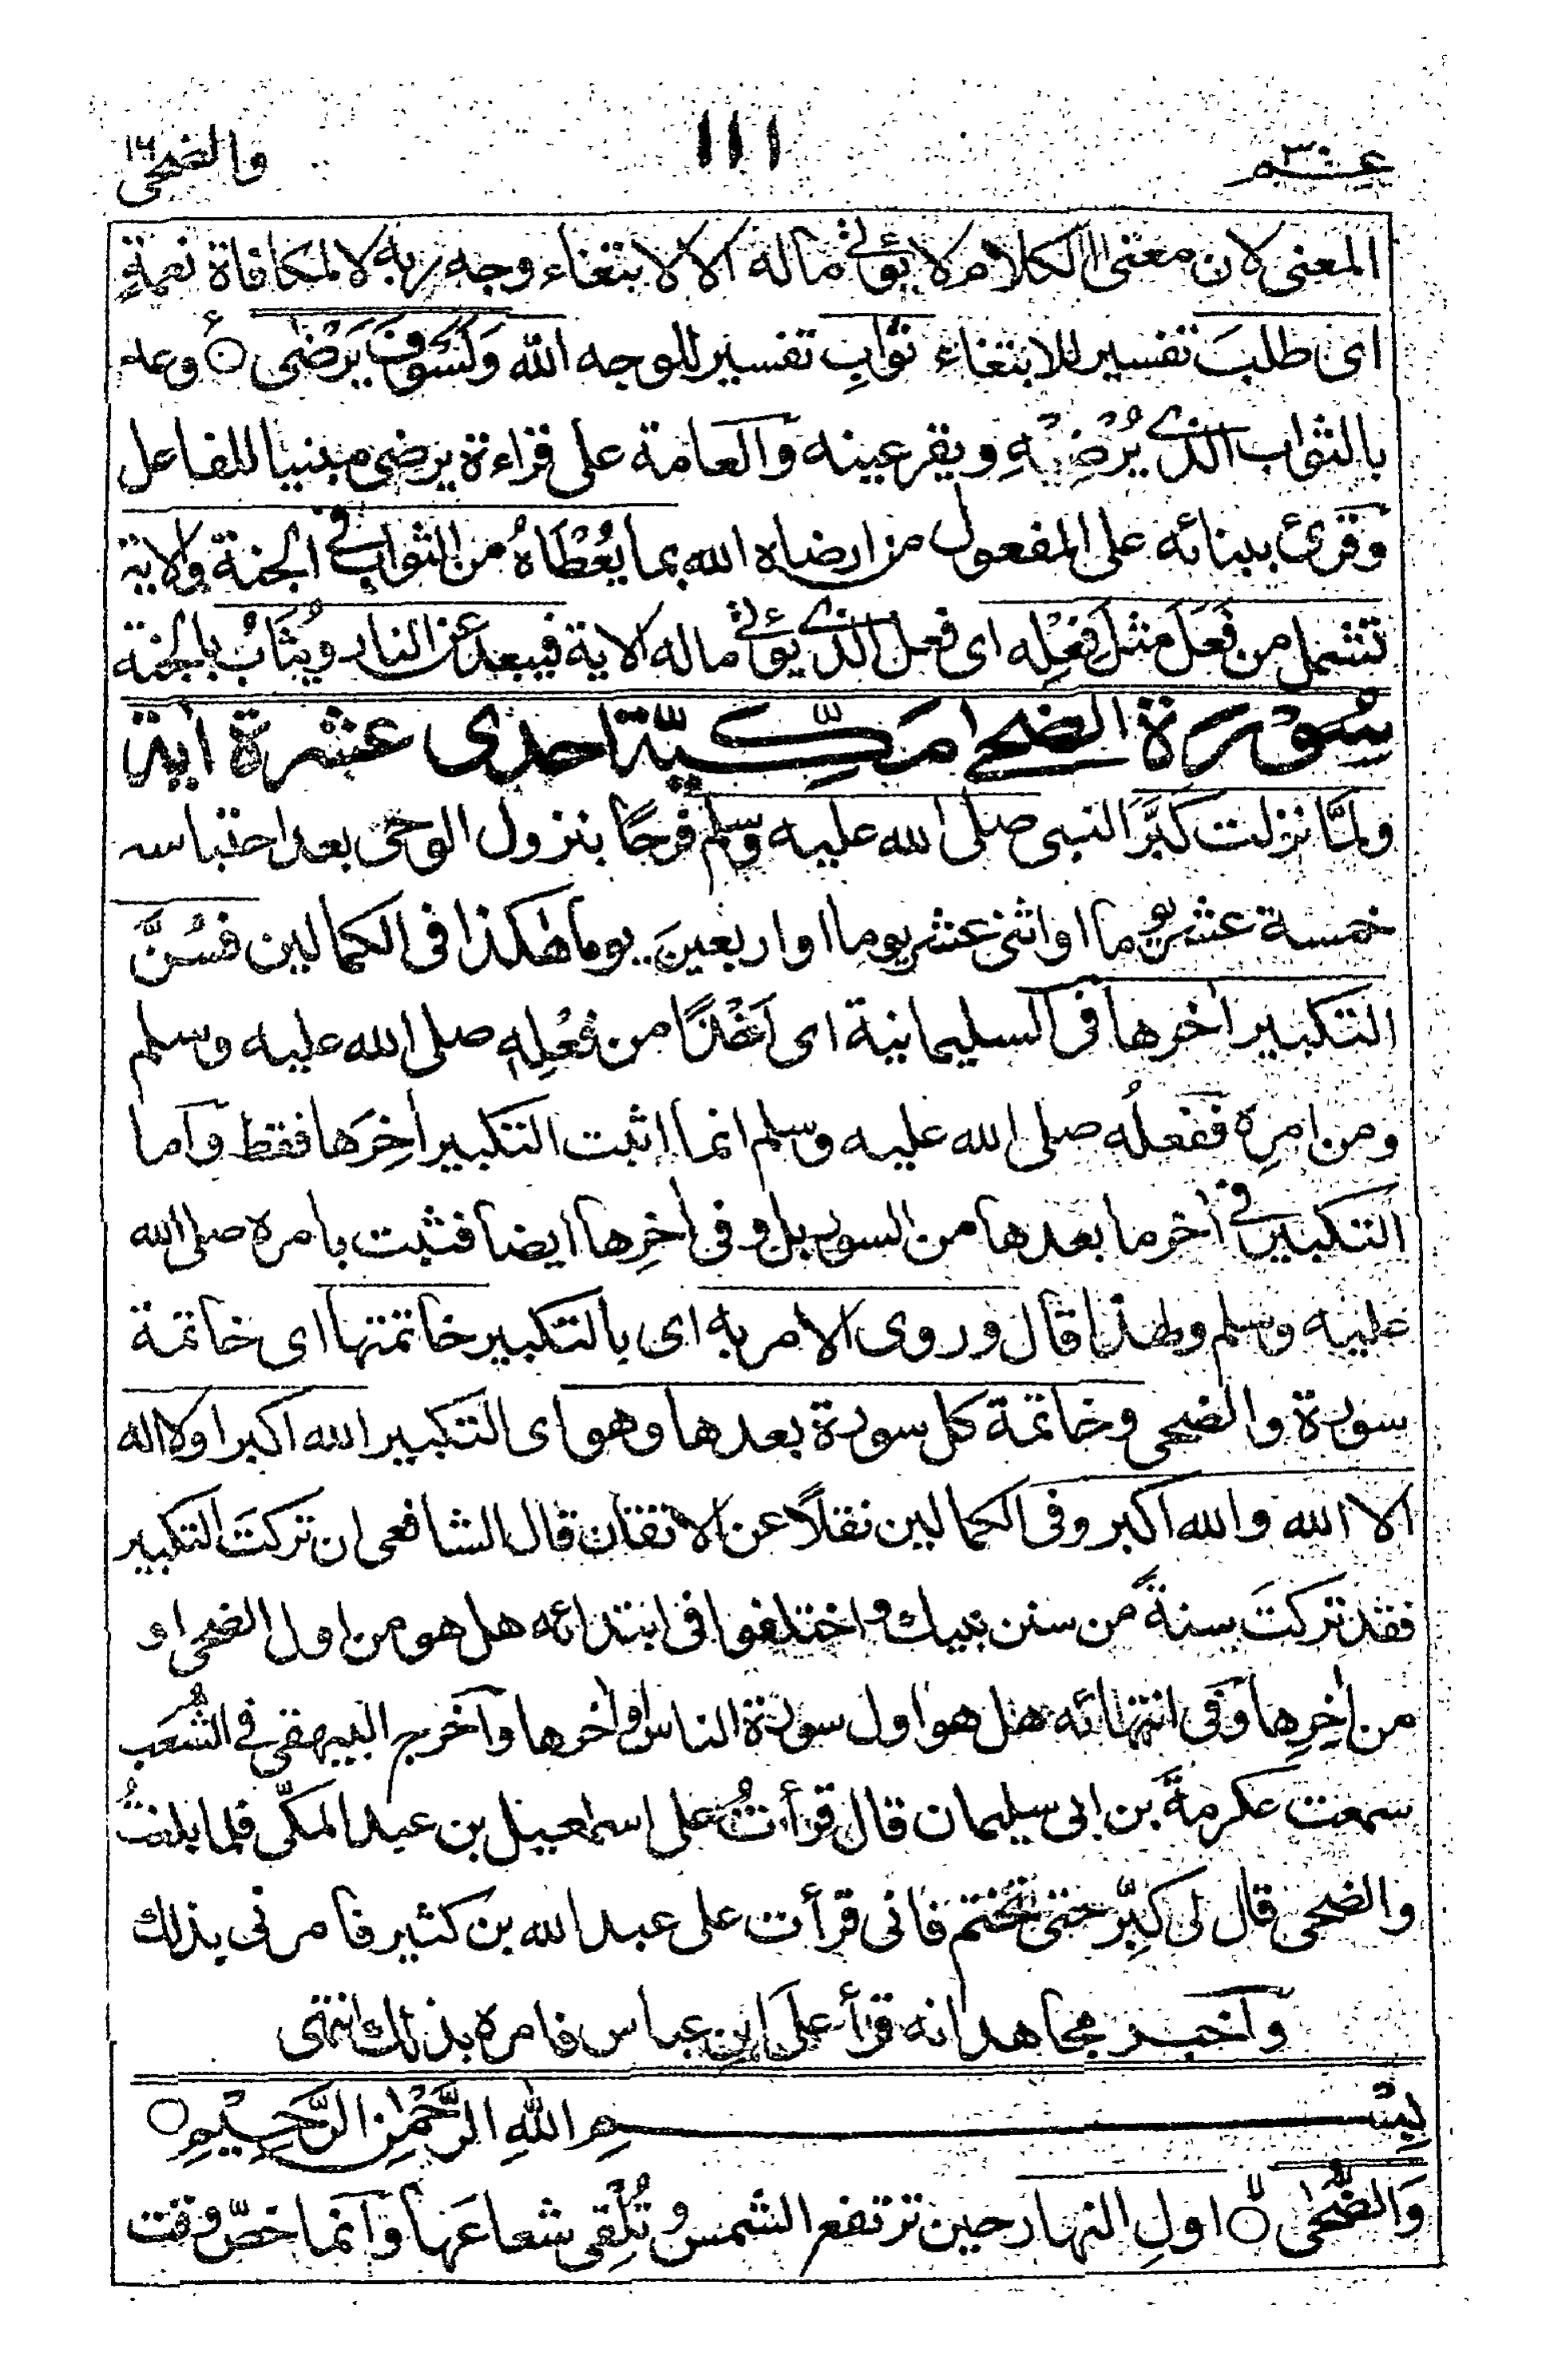 عـم ٣٠
١١١
والضحى ٩٣
المعنى لان معنى الكلام لا يؤتى ماله الا لابتغاء وجه ربه لا لمكافاة نعمةٍ
اى طلبَ تفسير للابتغاء ثوابِ تفسير للوجه الله وَلَسَوْفَ يَرْضٰى ○ وعد
بالثواب الذى يُرْضِيْهِ ويقر عينه والعامة على قراءة يرضى مبنيا للفاعل
وقرئ ببنائه على المفعول من ارضاه الله بما يُعْطَاهُ من الثواب فى الجنة والاية
تشمل من فَعَلَ مثل فِعْلِه اى فعل الذى يؤتى ماله الاية فيبعد عن النار ويُثَابُ بالجنة
سُورة الضحى مكِّيَّة احدى عشرة اية
ولمَّا نزلت كَبَّرَ النبى صلى الله عليه وسلم فرحًا بنزول الوحى بعد احتباسه
خمسة عشر يوما او اثنى عشر يوما او اربعينَ يوما هكذا فى الكمالين فسُنَّ
التكبير اٰخرها فى السليمانية اى اَخْذًا من فِعْلِهٖ صلى الله عليه وسلم
ومن امرِه ففعلُه صلى الله عليه وسلم انما اثبت التكبير اٰخِرَها فقط واما
التكبير فى اٰخر ما بعدها من السور بل وفى اٰخرِها ايضا فثبت بامره صلى الله
عليه وسلم ولهذا قال وروى الامر به اى بالتكبير خاتمتها اى خاتمة
سورة والضحى وخاتمة كل سورة بعدها وهو اى التكبير الله اكبر او لا اله
الا الله والله اكبر وفى الكمالين نقلًا عن الاتقان قال الشافعى ان تركتَ التكبير
فقد تركتَ سنةً من سنن نبيك واختلفوا فى ابتدائه هل هو من اول الضحى او
من اٰخِرِها وفى انتهائه هل هو اول سورة الناس او اٰخرها واخرج البيهقى فى الشُعَب
سمعت عكرمةَ بن ابى سليمان قال قرأتُ على اسمٰعيل بن عبد المكّى فلما بلغتُ
والضحى قال لى كبِّر حتى تختم فانى قرأت على عبد الله بن كثير فامرنى بذلك
واخبر مجاهد انه قرأ على ابن عباس فامره بذلك انتهى
بِسْمِ اللهِ الرَّحْمٰنِ الرَّحِيْمِ ○
وَالضُّحٰى ○ اولِ النهار حين ترتفع الشمس وتُلْقِى شعاعَها وانما خصّ وقت